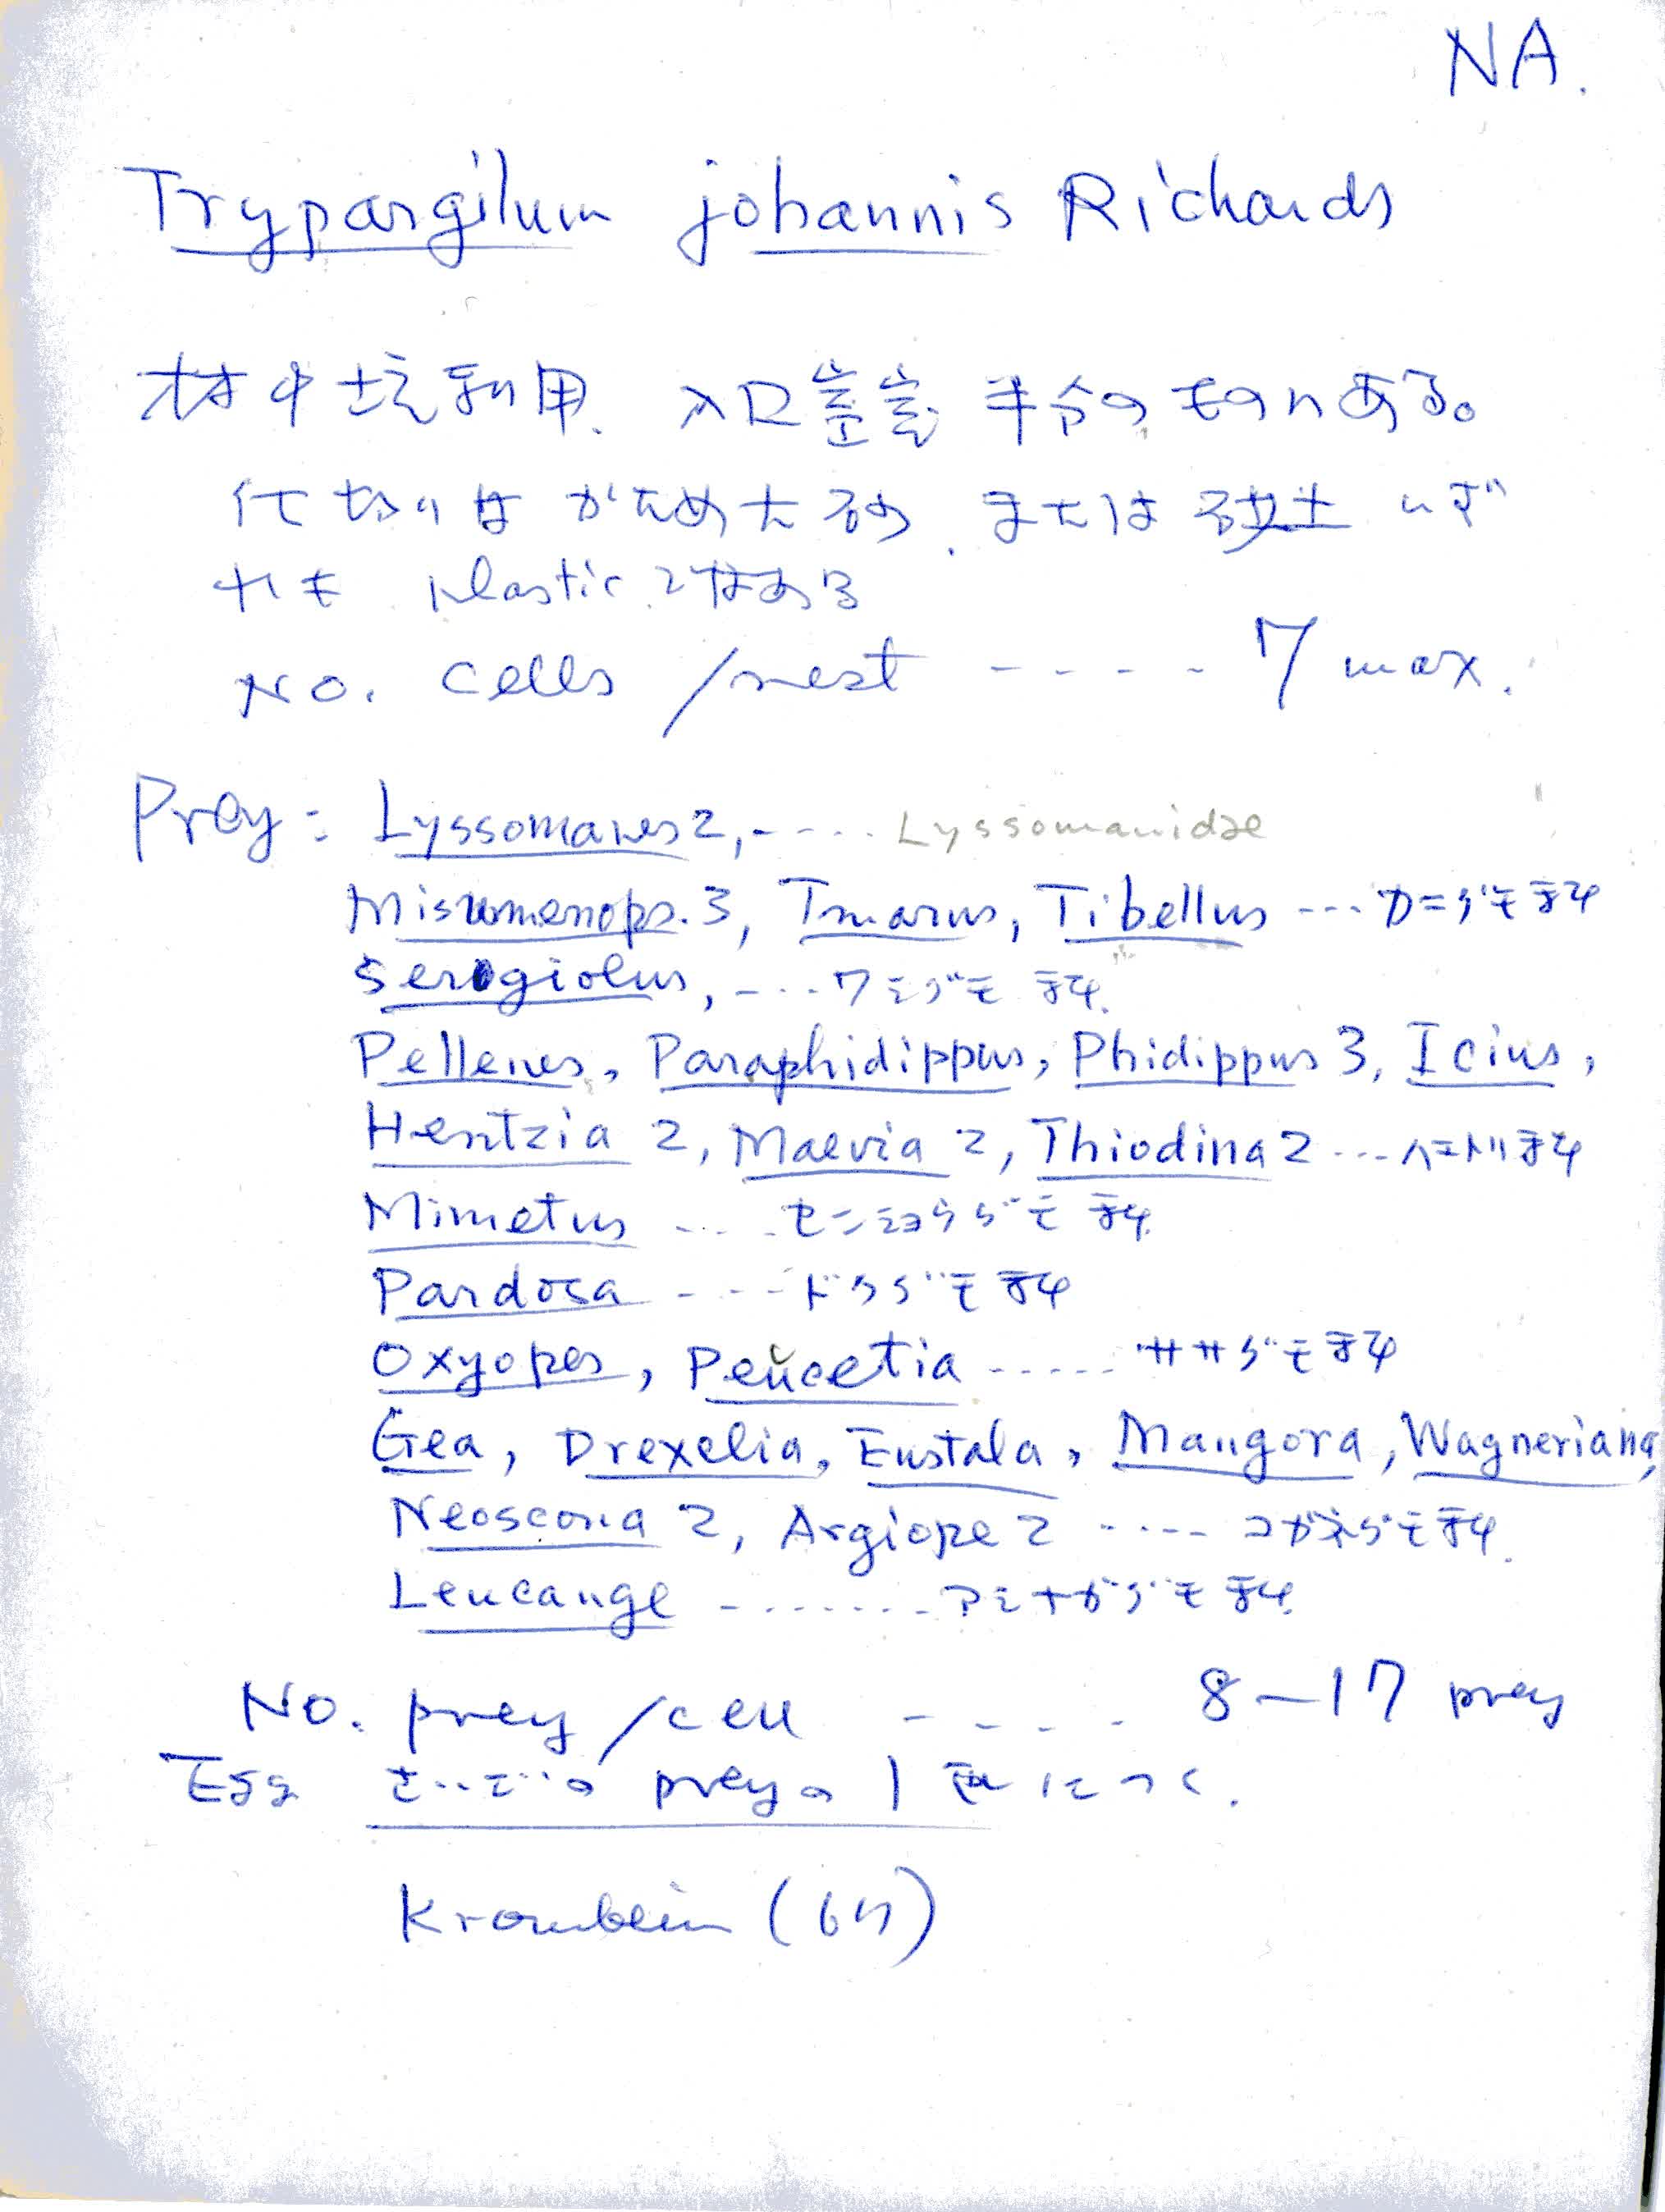 NA.
Trypargilum johannis Richards
材中坑利用. 入口 室 半分のものにある。
仕切りは かためた砂. または 砂土 いず
れも plastic では ある
No. cells /nest ---- 7 max.
Prey: Lyssomanes 2, ---- Lyssomanidae
Misumenops. 3, Tmarus, Tibellus --- カニグモ科
Sergiolus, ---- ワシグモ科.
Pellenes, Paraphidippus, Phidippus 3, Icius,
Hentzia 2, Maevia 2, Thiodina 2 --- ハエトリ科
Mimetus ---- センショウグモ科.
Pardosa ---- ドクグモ科
Oxyopes, Peucetia ----- ササグモ科
Gea, Drexelia, Eustala, Mangora, Wagneriana,
Neoscona 2, Argiope 2 ---- コガネグモ科.
Leucauge ------- アシナガグモ科.
No. prey /cell ---- 8-17 prey
Egg さいごの preyの 1 につく.
Krombein (67)